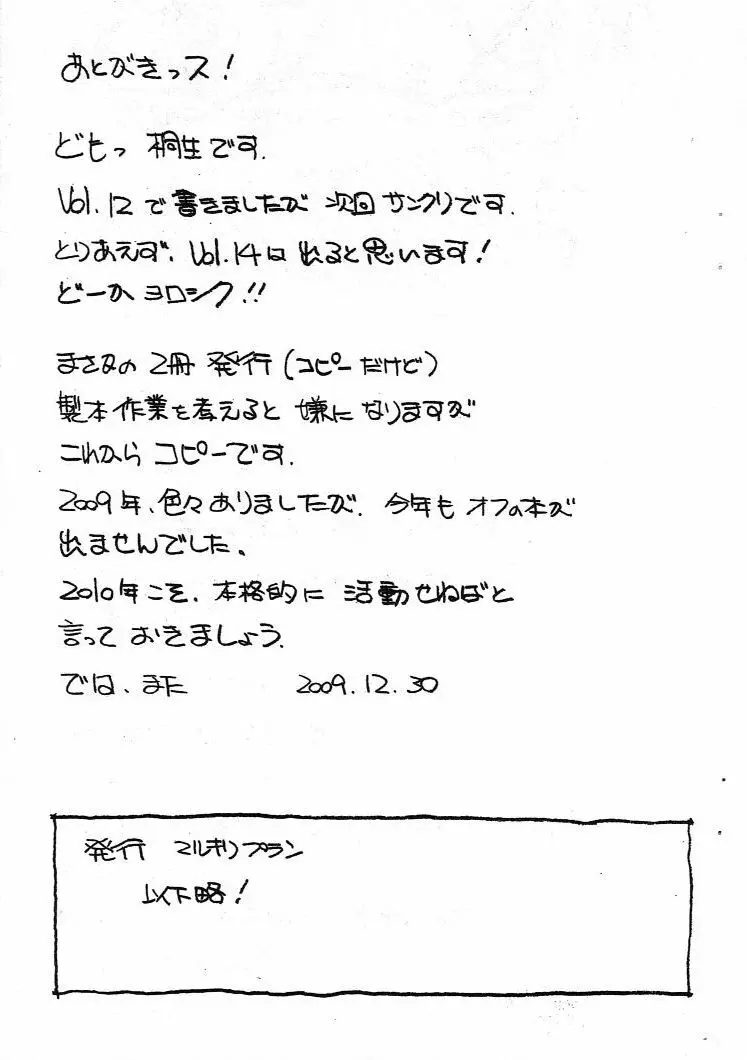 あとがきっス!
どもっ 桐生です.
Vol.12で書きましたが 次回 サンクリです.
とりあえず、Vol.14は 出ると思います!
どーか ヨロシク!!
まさかの 2冊 発行(コピーだけど)
製本作業を考えると 嫌に なりますが
これから コピーです.
2009年、色々ありましたが. 今年も オフの本が
出ませんでした。
2010年こそ. 本格的に 活動せねばと
言って おきましょう.
では、また 2009.12.30
発行 マルキリプラン
以下略!